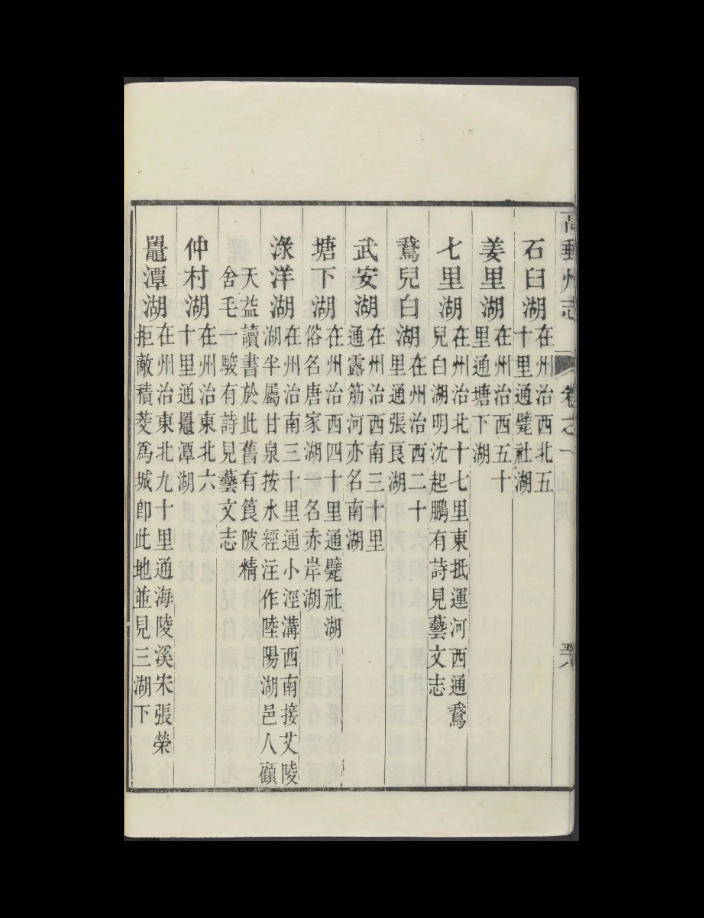 高郵州志 卷之一
石臼湖在州治西北五
十里通甓社湖
姜里湖在州治西五十
里通塘下湖
七里湖在州治北十七里東抵運河西通鵞
兒白湖明沈起鵬有詩見藝文志
鵞兒白湖在州治西二十
里通張良湖
武安湖在州治西南三十里
通露筋河亦名南湖
塘下湖在州治西四十里通甓社湖
俗名唐家湖一名赤岸湖
淥洋湖在州治南三十里通小涇溝西南接艾陵
湖半屬甘泉按水經注作陸陽湖邑人顧
天益讀書於此舊有筤陂精
舍毛一駿有詩見藝文志
仲村湖在州治東北六
十里通鼉潭湖
鼉潭湖在州治東北九十里通海陵溪宋張榮
拒敵積茭為城卽此地並見三湖下